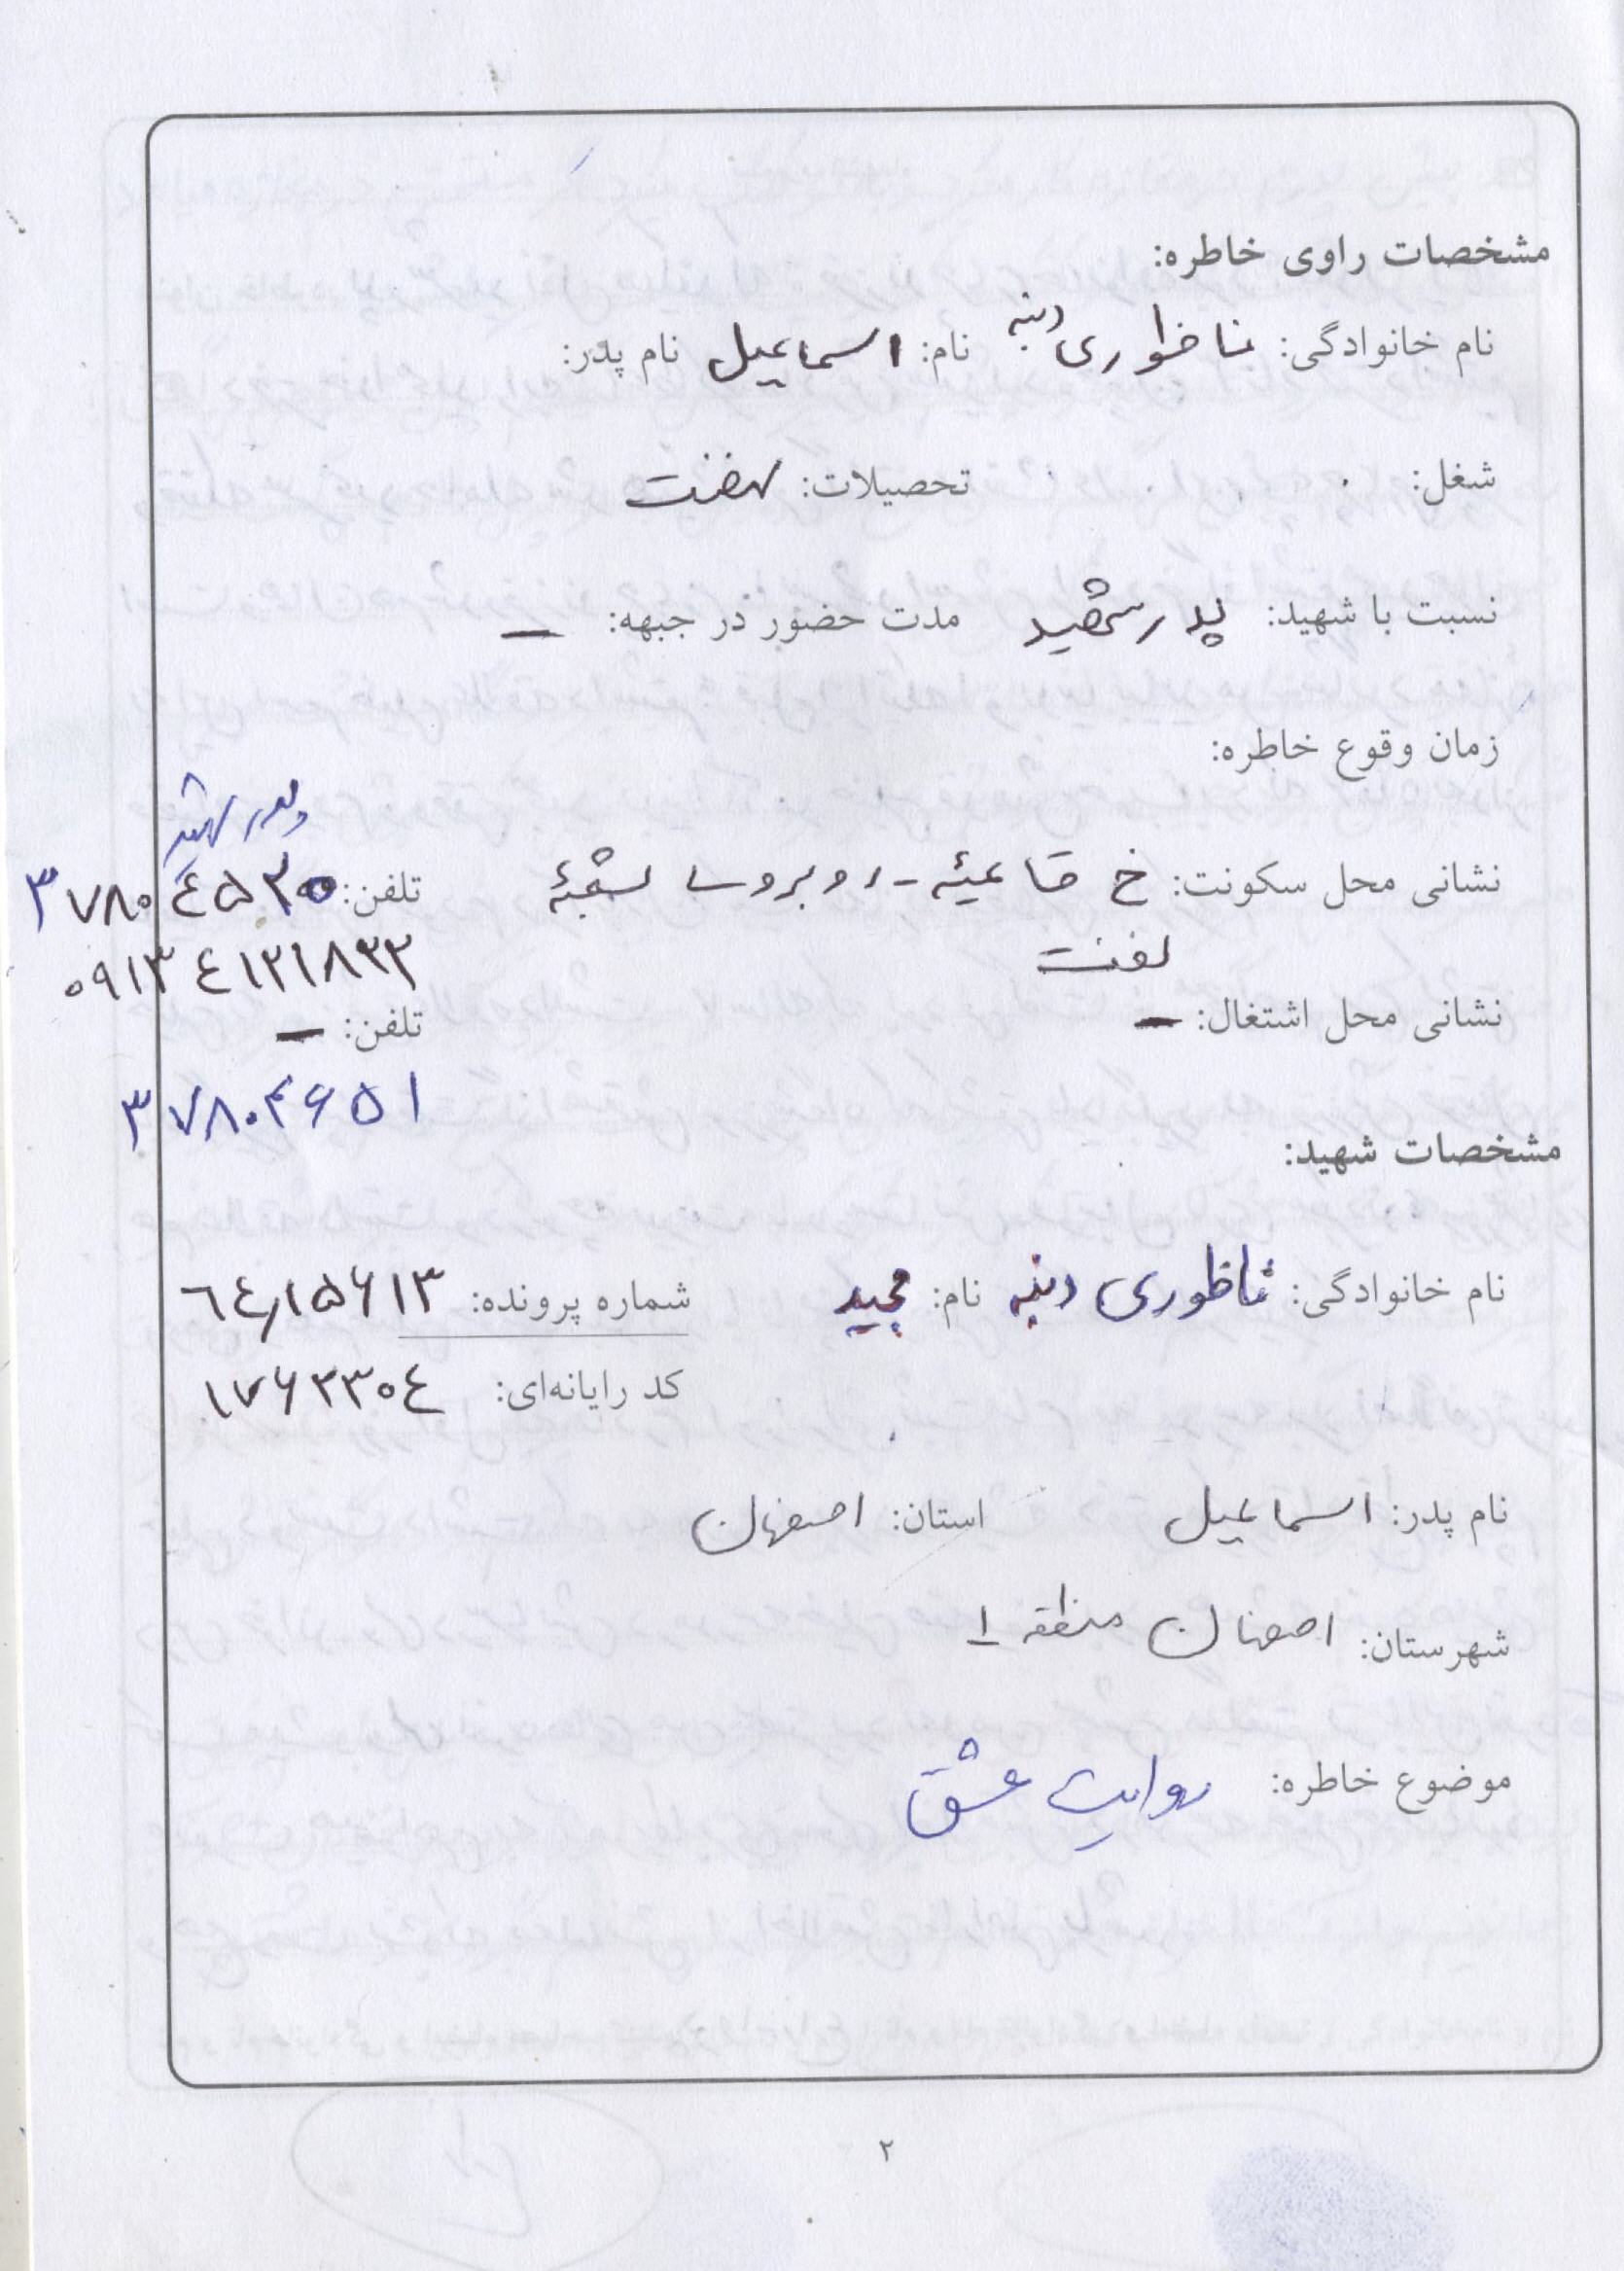 مشخصات راوی خاطره:
نام خانوادگی: ناخواری دنبه نام: اسماعیل نام پدر:
شغل: تحصیلات: نهضت
نسبت با شهید: پدر شهید مدت حضور در جبهه: —
زمان وقوع خاطره:
پدر شهید
نشانی محل سکونت: خ قائمیه - روبروی شعبه تلفن: ۳۷۸۰۴۵۲۰
نفت ۰۹۱۳۴۱۲۱۸۳۳
نشانی محل اشتغال: — تلفن: —
۳۷۸۰۴۶۵۱
مشخصات شهید:
نام خانوادگی: ناظوری دنبه نام: مجید شماره پرونده: ۶۴٫۱۵۶۱۳
کد رایانه‌ای: ۱۷۶۲۳۰۴
نام پدر: اسماعیل استان: اصفهان
شهرستان: اصفهان منطقه ۱
موضوع خاطره: روایت عشق
۲